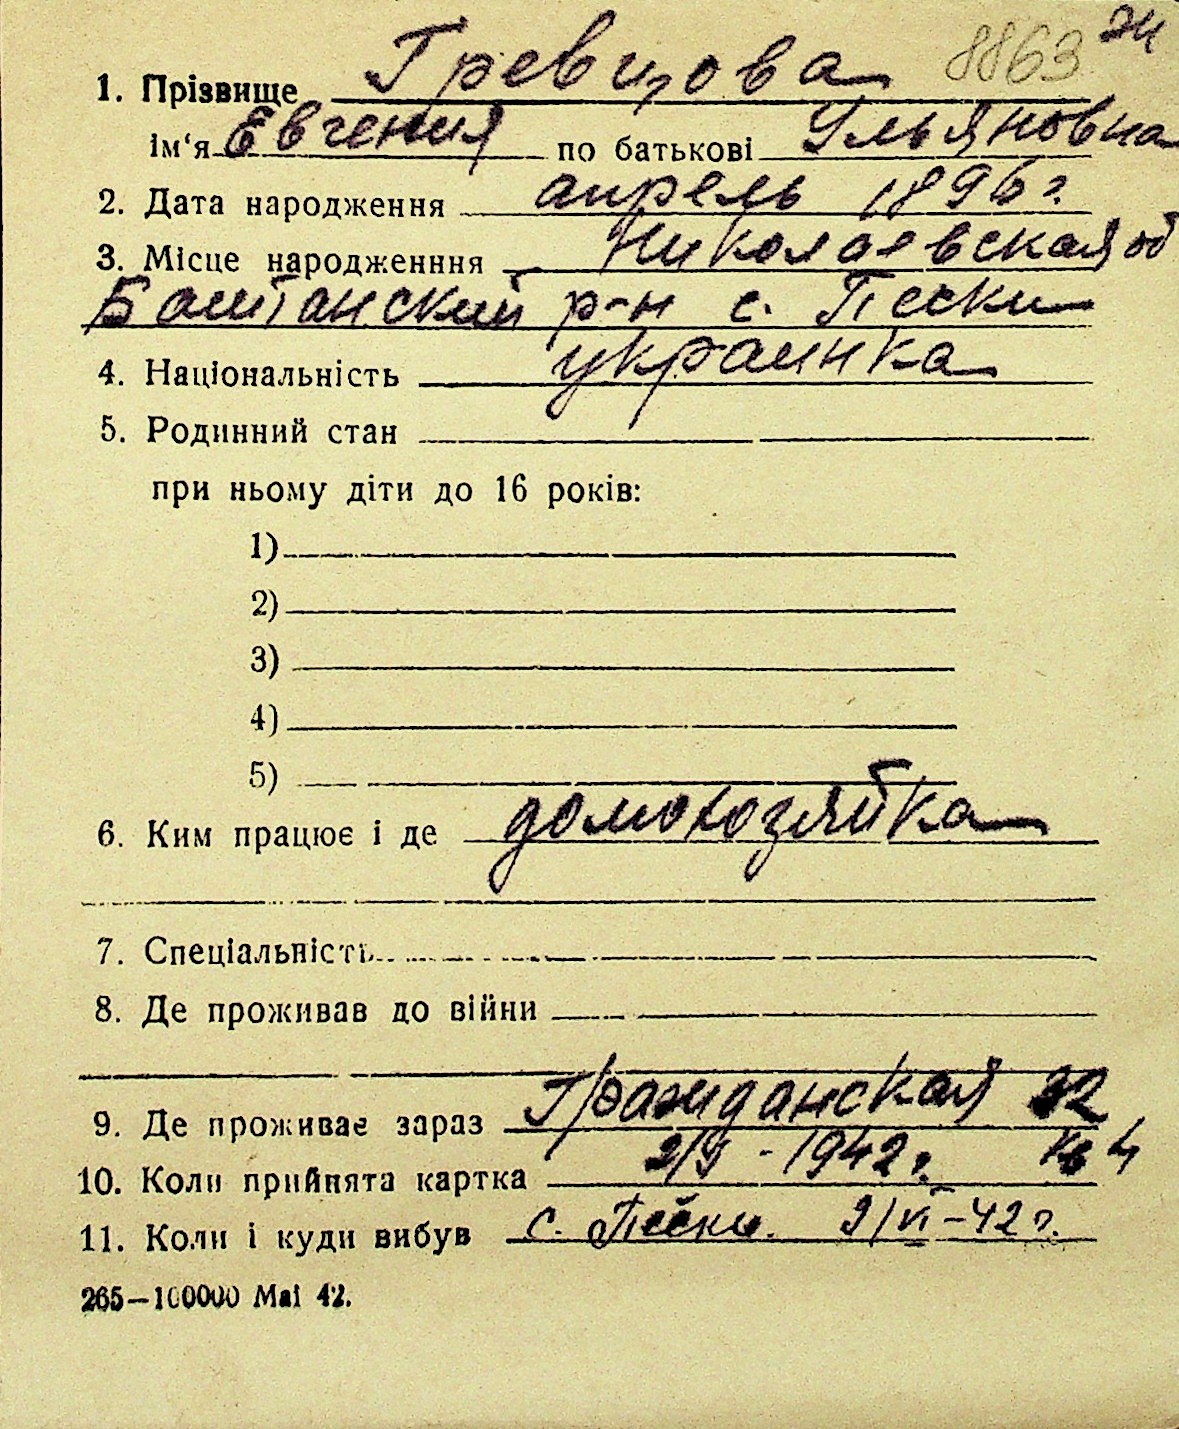 8863 эн
1. Прізвище Гревцова
ім'я Евгения по батькові Ульяновна
2. Дата народження апрель 1896 г.
3. Місце народженння Николаевская об
Баштанский р-н с. Пески
4. Національність украинка
5. Родинний стан
при ньому діти до 16 років:
1)
2)
3)
4)
5)
6. Ким працює і де домохозяйка
7. Спеціальність
8. Де проживав до війни
9. Де проживає зараз Гражданская 32
кв 4
10. Коли прийнята картка 2/VI - 1942 г.
11. Коли і куди вибув с. Пески. 9/VI-42 г.
265—100000 Маі 42.